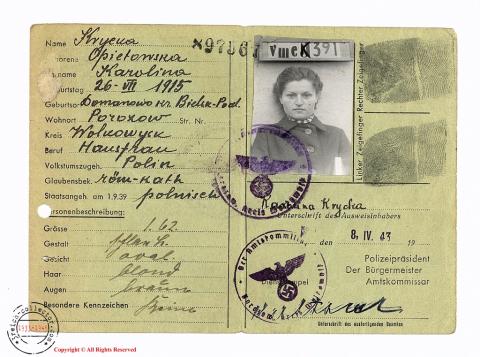 Name Krycka
Geborene Opietowska
Vorname Karolina
Geburtstag 26-VII 1915
Geburtsort Domanowo kr. Bielsk-Pod.
Wohnort Porozow Str. Nr.
Kreis Wolkowysk
Beruf Hausfrau
Volkstumszugeh. Polin
Glaubensbek. röm-kath
Staatsangeh. am 1.9.39 polnisch
Personenbeschreibung:
Grösse 1.62
Gestalt schlank
Gesicht oval
Haar blond
Augen braun
Besondere Kennzeichen keine
VmeK 391
Linker Zeigefinger Rechter Zeigefinger
Karolina Krycka
Unterschrift des Ausweisinhabers
, den 8. IV. 43 19
Der Amtskommissar
Polizeipräsident
Der Bürgermeister
Amtskommissar
Unterschrift des ausfertigenden Beamten
Copyright © All Rights Reserved